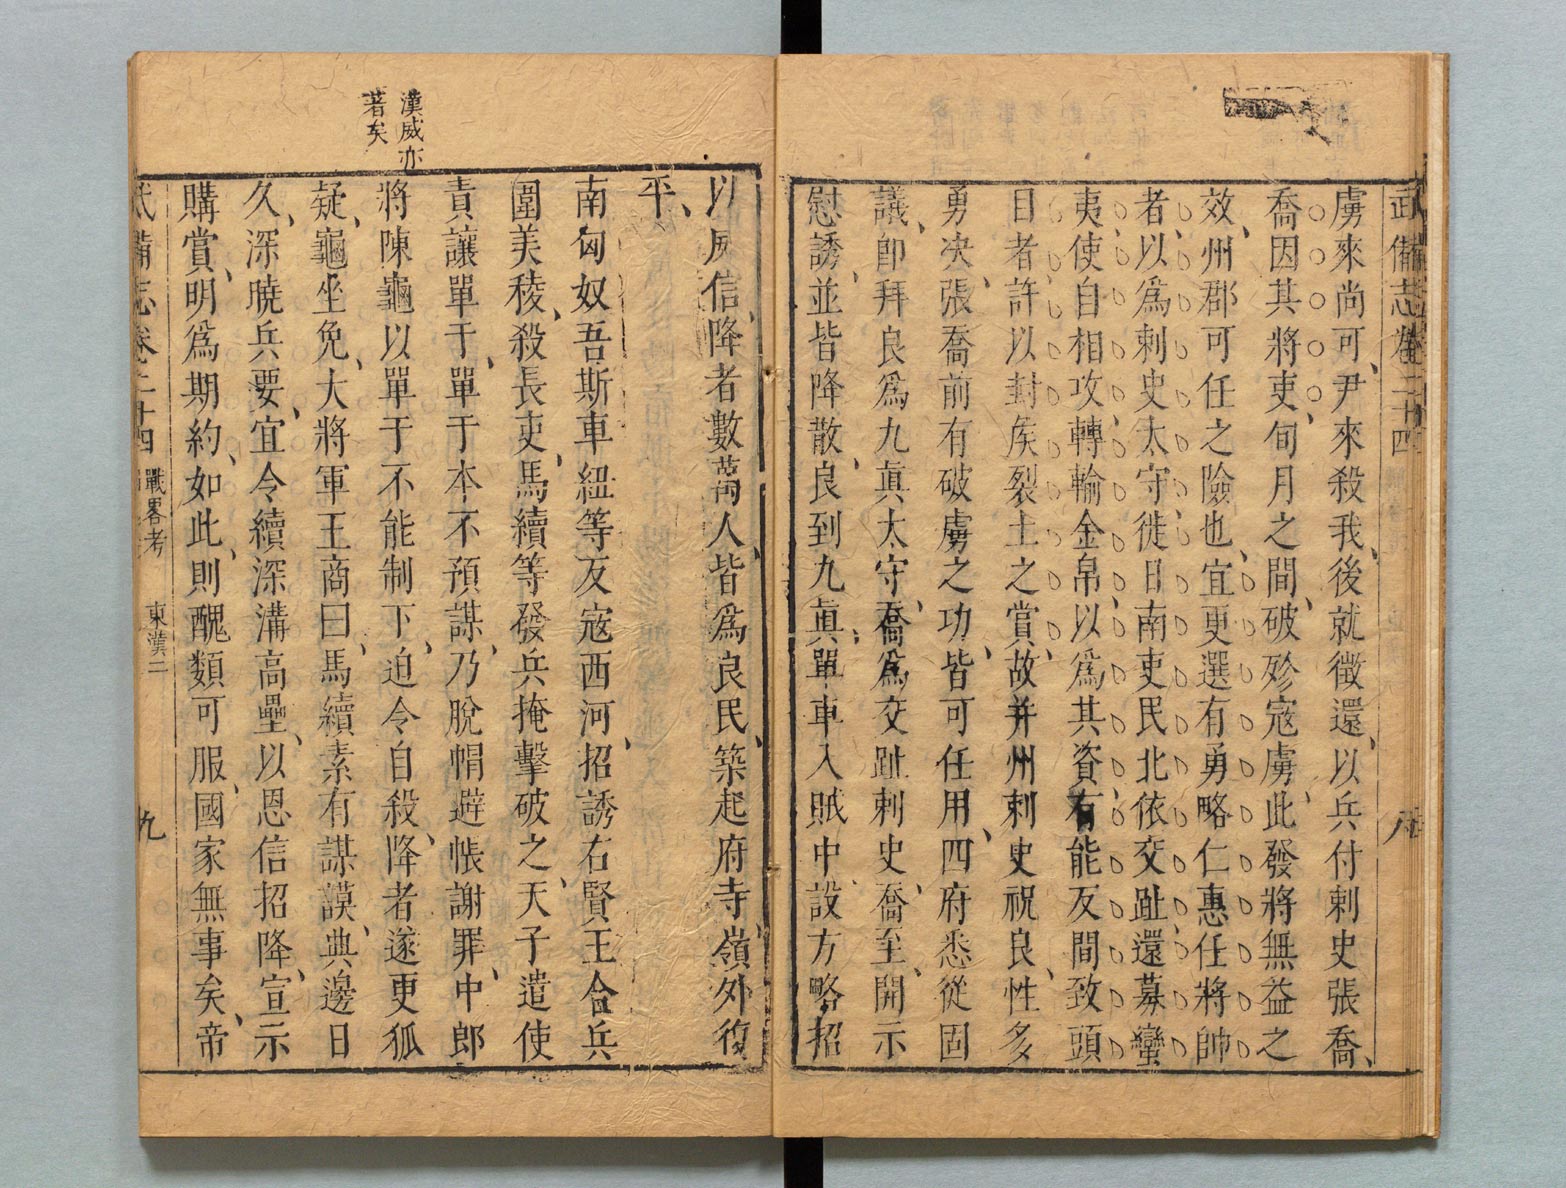 武備志卷二十四
八
虜來尚可、尹來殺我、後就徵還、以兵付刺史張喬、
喬因其將吏、旬月之間、破殄寇虜、此發將無益之
效、州郡可任之險也、宜更選有勇略仁惠任將帥
者、以爲刺史太守、徙日南吏民北依交趾、還募蠻
夷、使自相攻、轉輸金帛、以爲其資、有能反間致頭
目者、許以封矦裂土之賞、故并州刺史祝良、性多
勇决、張喬前有破虜之功、皆可任用、四府悉從固
議、卽拜良爲九眞太守、喬爲交趾刺史、喬至、開示
慰誘、並皆降散、良到九眞、單車入賊中、設方略、招
以威信、降者數萬人、皆爲良民、築起府寺、嶺外復
平、
南匈奴吾斯車紐等反、寇西河、招誘右賢王合兵
圍美稜、殺長吏、馬續等發兵掩擊破之、天子遣使
責讓單于、單于本不預謀、乃脫帽避帳謝罪、中郎
將陳龜以單于不能制下、迫令自殺、降者遂更狐
疑、龜坐免、大將軍王商曰、馬續素有謀謨、典邊日
久、深曉兵要、宜令續深溝高壘、以恩信招降、宣示
購賞、明爲期約、如此、則醜類可服、國家無事矣、帝
漢威亦
著矣
武備志卷二十四
戰畧考
東漢二
九